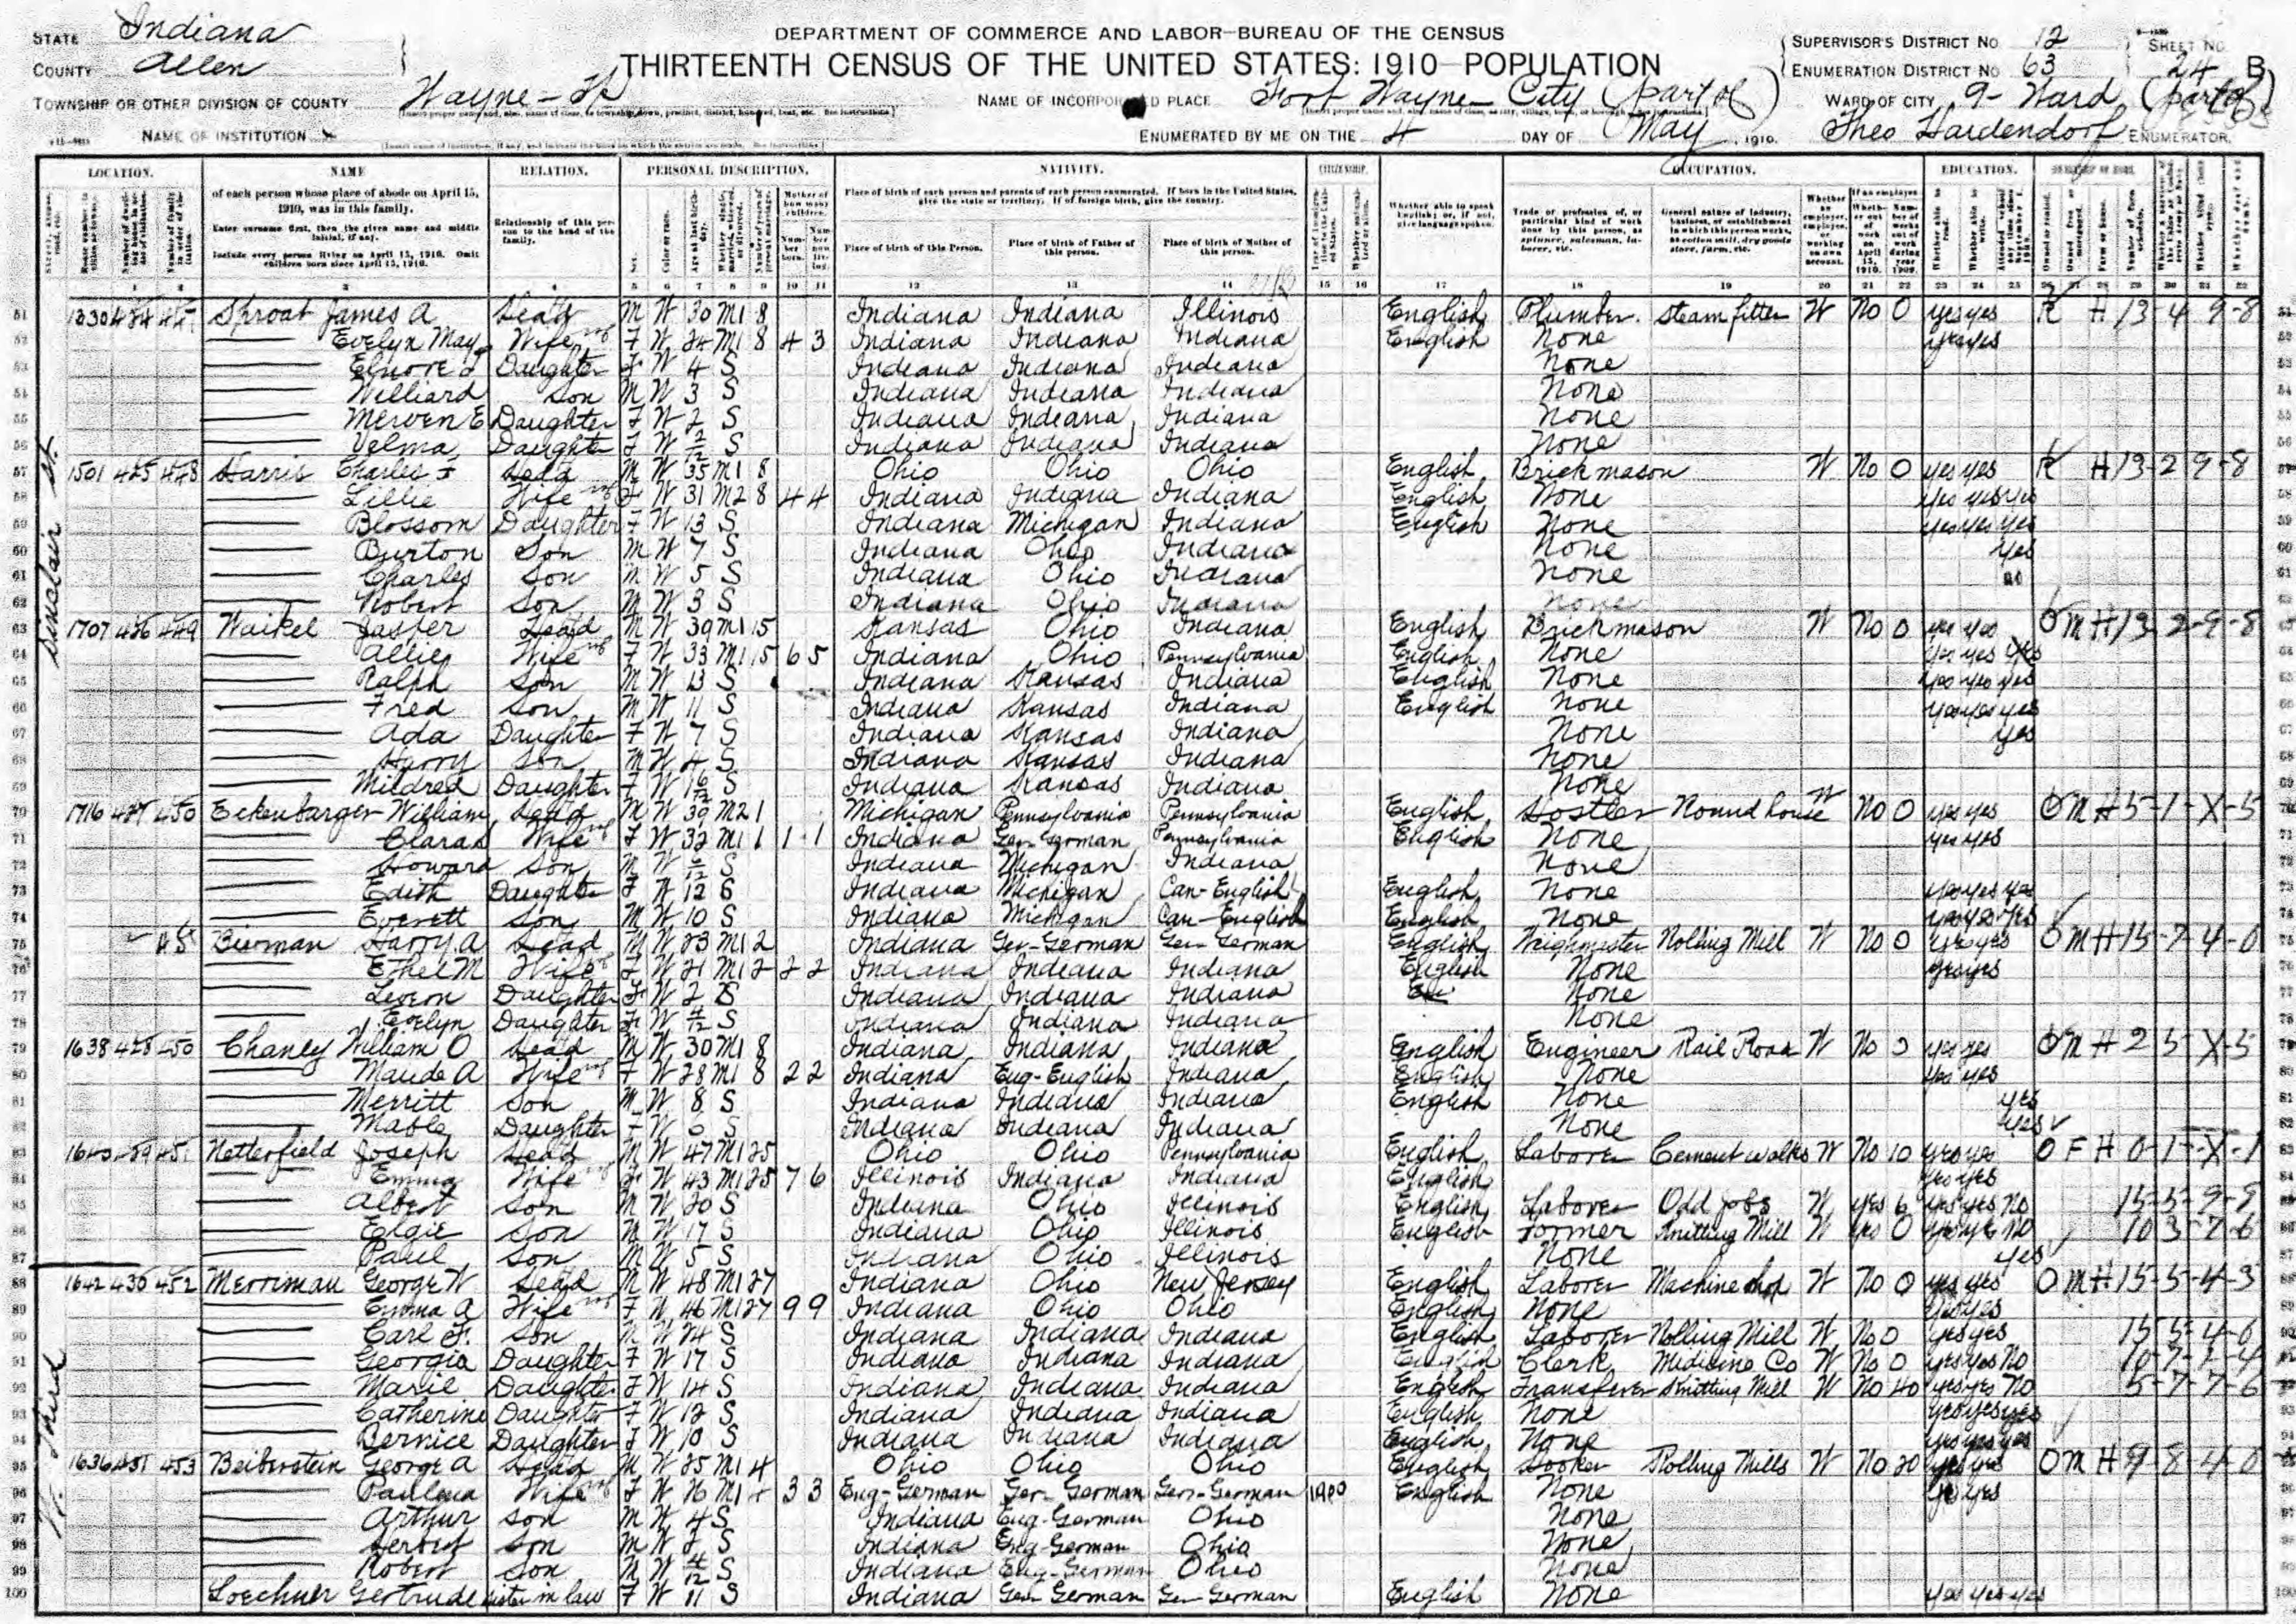 STATE Indiana
COUNTY Allen
TOWNSHIP OR OTHER DIVISION OF COUNTY Wayne - Tp
NAME OF INSTITUTION x
DEPARTMENT OF COMMERCE AND LABOR—BUREAU OF THE CENSUS
THIRTEENTH CENSUS OF THE UNITED STATES: 1910—POPULATION
NAME OF INCORPORATED PLACE Fort Wayne City (part of)
ENUMERATED BY ME ON THE 4 DAY OF May, 1910.
SUPERVISOR'S DISTRICT No. 12
ENUMERATION DISTRICT No. 63
SHEET No. 24 B
WARD OF CITY 9 - Ward (part of)
Theo Hardendorf ENUMERATOR.
LOCATION. NAME RELATION. PERSONAL DESCRIPTION. NATIVITY. CITIZENSHIP. OCCUPATION. EDUCATION.
of each person whose place of abode on April 15, 1910, was in this family.
Enter surname first, then the given name and middle initial, if any.
Include every person living on April 15, 1910. Omit children born since April 15, 1910.
Relationship of this person to the head of the family.
Place of birth of each person and parents of each person enumerated. If born in the United States, give the state or territory. If of foreign birth, give the country.
Place of birth of this Person. Place of birth of Father of this person. Place of birth of Mother of this person.
Whether able to speak English; or, if not, give language spoken.
Trade or profession of, or particular kind of work done by this person, as spinner, salesman, laborer, etc.
General nature of industry, business, or establishment in which this person works, as cotton mill, dry goods store, farm, etc.
Sinclair St.
51 1330 424 447 Sproat James A Head M W 30 M1 8 Indiana Indiana Illinois English Plumber steam fitter W No 0 yes yes R H 13-4 9-8
52 Evelyn May Wife F W 24 M1 8 4 3 Indiana Indiana Indiana English None yes yes
53 Daughter F W 4 S Indiana Indiana Indiana None
54 Williard Son M W 3 S Indiana Indiana Indiana None
55 Merven E Daughter F W 2 S Indiana Indiana Indiana None
56 Velma Daughter F W 2/12 S Indiana Indiana Indiana None
57 1501 425 448 Harris Charles F Head M W 35 M1 8 Ohio Ohio Ohio English Brick mason W No 0 yes yes R H 13-2 9-8
58 Lillie Wife F W 31 M2 8 4 4 Indiana Indiana Indiana English None yes yes yes
59 Blossom Daughter F W 13 S Indiana Michigan Indiana English None yes yes yes
60 Burton Son M W 7 S Indiana Ohio Indiana None yes
61 Charles Son M W 5 S Indiana Ohio Indiana None no
62 Robert Son M W 3 S Indiana Ohio Indiana None
63 1707 426 449 Waikel Jasper Head M W 39 M1 15 Kansas Ohio Indiana English Brick mason W No 0 yes yes O M H 13-2-9-8
64 Allie Wife F W 33 M1 15 6 5 Indiana Ohio Pennsylvania English None yes yes yes
65 Ralph Son M W 13 S Indiana Kansas Indiana English None yes yes yes
66 Fred Son M W 11 S Indiana Kansas Indiana English None yes yes yes
67 Ada Daughter F W 7 S Indiana Kansas Indiana None yes
68 Harry Son M W 4 S Indiana Kansas Indiana None
69 Mildred Daughter F W 1 6/12 S Indiana Kansas Indiana None
70 1716 427 450 Eckenbarger William Head M W 39 M2 1 Michigan Pennsylvania Pennsylvania English Hostler Round house W No 0 yes yes O M H 5-1-X-5
71 Clara Wife F W 32 M1 1 1 1 Indiana Ger-German Pennsylvania English None yes yes
72 Howard Son M W 6/12 S Indiana Michigan Indiana None
73 Edith Daughter F W 12 S Indiana Michigan Can-English English None yes yes yes
74 Everett Son M W 10 S Indiana Michigan Can-English English None yes yes yes
75 Bierman Harry A Head M W 23 M1 2 Indiana Ger-German Ger-German English Weighmaster Rolling Mill W No 0 yes yes O M H 15-7-4-0
76 Ethel M Wife F W 21 M1 2 2 2 Indiana Indiana Indiana English None yes yes
77 Daughter F W 2 S Indiana Indiana Indiana None
78 Evelyn Daughter F W 4/12 S Indiana Indiana Indiana None
79 1638 428 450 Chaney William O Head M W 30 M1 8 Indiana Indiana Indiana English Engineer Rail Road W No 0 yes yes O M H 2 5-X-5
80 Maude A Wife F W 28 M1 8 2 2 Indiana Eng-English Indiana English None yes yes
81 Merritt Son M W 8 S Indiana Indiana Indiana English None yes
82 Mable Daughter F W 6 S Indiana Indiana Indiana None yes
83 Netterfield Joseph Head M W 47 M1 25 Ohio Ohio Pennsylvania English Laborer Cement walks W No 10 yes yes O F H 0-1-X-1
84 Emma Wife F W 43 M1 25 7 6 Illinois Indiana Indiana English yes yes
85 Albert Son M W 20 S Indiana Ohio Illinois English Laborer Odd jobs W yes 6 yes yes No
86 Elgie Son M W 17 S Indiana Ohio Illinois English Former Knitting Mill W yes 0 yes yes No 10 3-7-6
87 Paul Son M W 5 S Indiana Ohio Illinois None yes
W. Third
88 1642 430 452 Merriman George W Head M W 48 M1 27 Indiana Ohio New Jersey English Laborer Machine shop W No 0 yes yes O M H 15-5-4-3
89 Emma A Wife F W 46 M1 27 9 9 Indiana Ohio Ohio English None yes yes
90 Carl F. Son M W 24 S Indiana Indiana Indiana English Laborer Rolling Mill W No 0 yes yes 15-5-4-0
91 Georgia Daughter F W 17 S Indiana Indiana Indiana English Clerk Medicine Co W No 0 yes yes No
92 Marie Daughter F W 14 S Indiana Indiana Indiana English Transferer Knitting Mill W No 40 yes yes No 5-7-7-6
93 Catherine Daughter F W 12 S Indiana Indiana Indiana English None yes yes yes
94 Bernice Daughter F W 10 S Indiana Indiana Indiana English None yes yes yes
95 1636 431 453 Beiberstein George A Head M W 25 M1 4 Ohio Ohio Ohio English Hooker Rolling Mills W No 20 yes yes O M H 9-8-4-0
96 Paulina Wife F W 26 M1 4 3 3 Eng-German Ger-German Ger-German English None yes yes
97 Arthur Son M W 4 S Indiana Eng-German Ohio None
98 Herbert Son M W 2 S Indiana Eng-German Ohio None
99 Robert Son M W 4/12 S Indiana Eng-German Ohio None
100 Loechner Gertrude sister in law F W 11 S Indiana Ger-German Ger-German English None yes yes yes